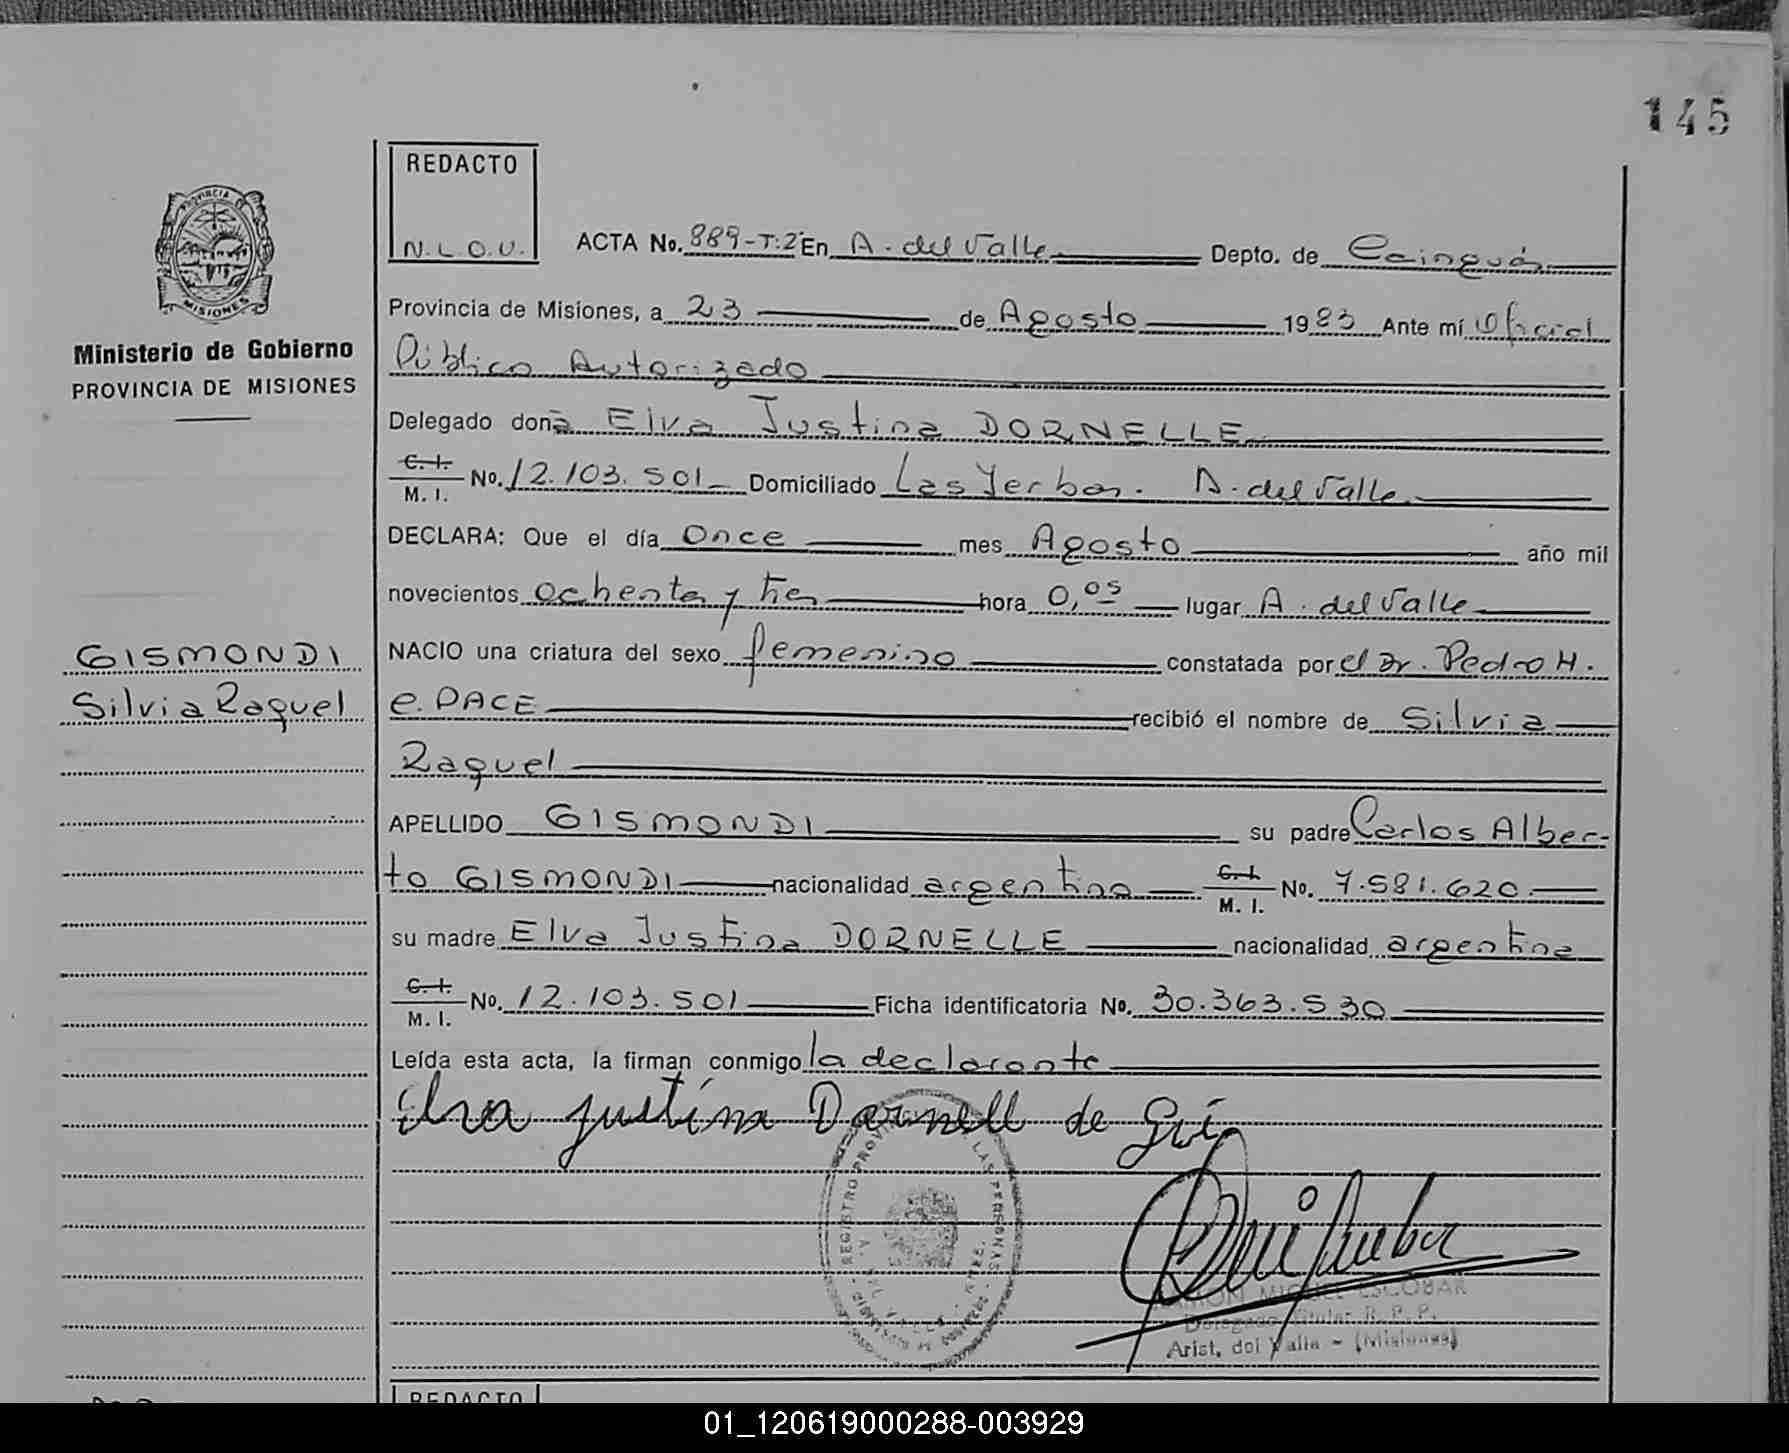 145
REDACTO
N.L.O.U.
PROVINCIA DE
MISIONES
Ministerio de Gobierno
PROVINCIA DE MISIONES
ACTA No. 889-T:2º En A. del Valle Depto. de Cainguás
Provincia de Misiones, a 23 de Agosto 1983 Ante mí Oficial
Público Autorizado
Delegado doña Elva Justina DORNELLE
C. I.
M. I. No. 12.103.501 Domiciliado Las Yerbas. A. del Valle
DECLARA: Que el día Once mes Agosto año mil
novecientos ochenta y tres hora 0,05 lugar A. del Valle
GISMONDI
Silvia Raquel
NACIO una criatura del sexo femenino constatada por el Dr. Pedro H.
e. PACE recibió el nombre de Silvia
Raquel
APELLIDO GISMONDI su padre Carlos Alber-
to GISMONDI nacionalidad argentina C. I. M. I. No. 7.581.620
su madre Elva Justina DORNELLE nacionalidad argentina
C. I.
M. I. No. 12.103.501 Ficha identificatoria No. 30.363.530
Leída esta acta, la firman conmigo la declarante
Elva Justína Dornell de Gi
REGISTRO PROV LAS PERSONAS
RAMON MIGUEL ESCOBAR
Delegado Titular R. P. P.
Arist. del Valle - (Misiones)
REDACTO
01_120619000288-003929